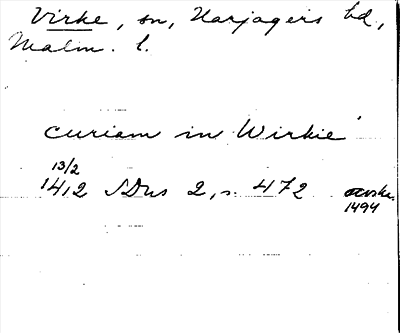 Virke, sn, Harjagers hd,
Malm. l.
curiam in Wirkie
13/2
1412 SDns 2, s. 472 avskr.
1494